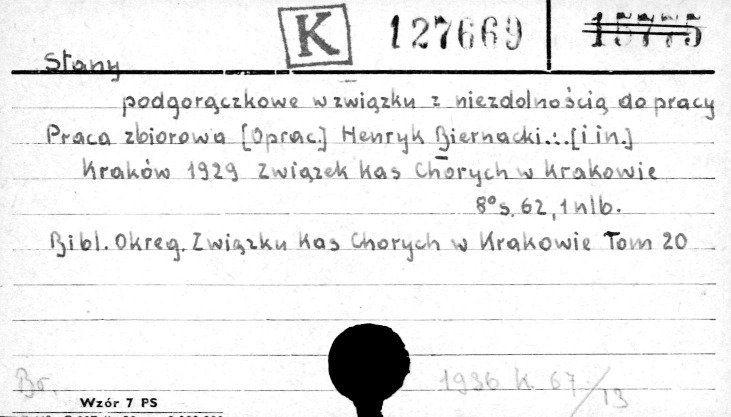 K 127669 15775
Stany
podgorączkowe w związku z niezdolnością do pracy
Praca zbiorowa [Oprac.] Henryk Biernacki... [i in.]
Kraków 1929 Związek Kas Chorych w Krakowie
8° s. 62, 1 nlb.
Bibl. Okreg. Związku Kas Chorych w Krakowie Tom 20
Br. 1936 K 67/13
Wzór 7 PS